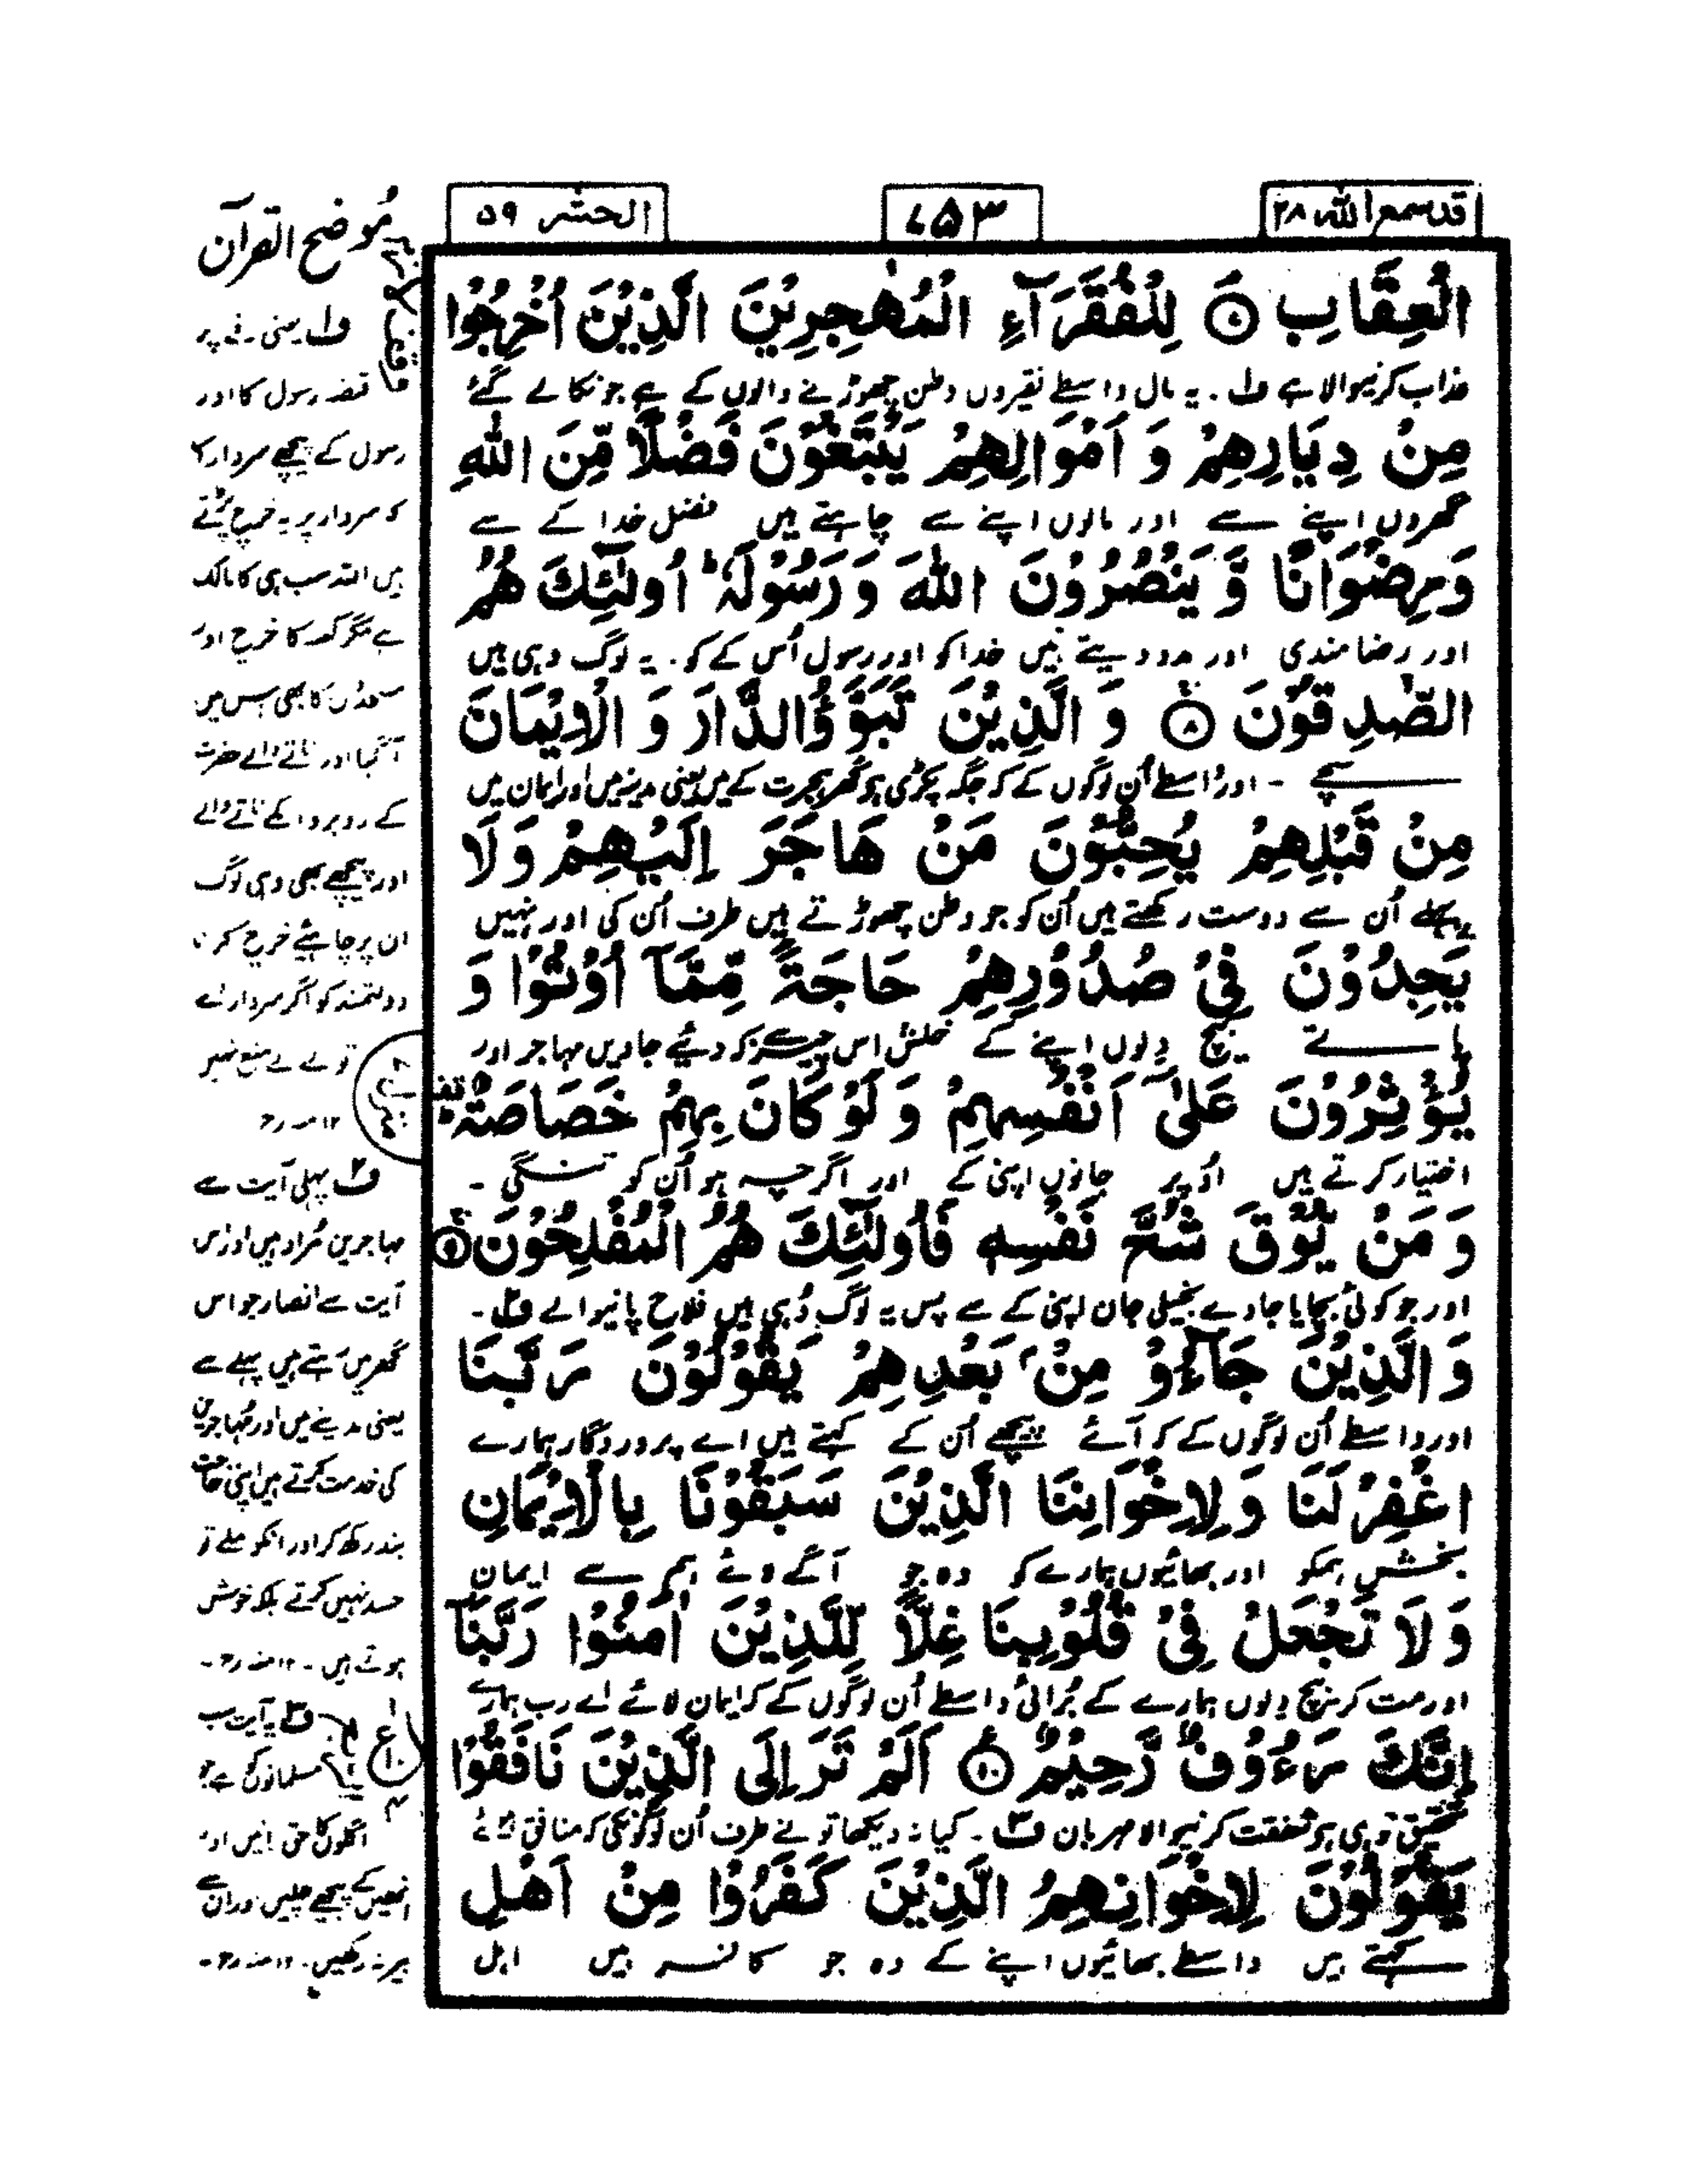 قد سمع الله ۲۸
۷۵۳
الحشر ۵۹
الْعِقَابِ ۝۷ لِلْفُقَرَآءِ الْمُهٰجِرِيْنَ الَّذِيْنَ اُخْرِجُوْا
عذاب کرنیوالا ہے ف۱۔ یہ مال واسطے فقیروں وطن چھوڑنے والوں کے ہے جو نکالے گئے
مِنْ دِيَارِهِمْ وَ اَمْوَالِهِمْ يَبْتَغُوْنَ فَضْلًا مِّنَ اللّٰهِ
گھروں اپنے سے اور مالوں اپنے سے چاہتے ہیں فضل خدا کے سے
وَرِضْوَانًا وَّ يَنْصُرُوْنَ اللّٰهَ وَ رَسُوْلَهٗ ؕ اُولٰٓئِكَ هُمُ
اور رضامندی اور مدد دیتے ہیں خدا کو اور رسول اُس کے کو۔ یہ لوگ وہی ہیں
الصّٰدِقُوْنَ ۝۸ وَ الَّذِيْنَ تَبَوَّؤُ الدَّارَ وَ الْاِيْمَانَ
سچے ۔ اور واسطے اُن لوگوں کے کہ جگہ پکڑی ہے گھر ہجرت کے میں یعنی مدینہ میں اور ایمان میں
مِنْ قَبْلِهِمْ يُحِبُّوْنَ مَنْ هَاجَرَ اِلَيْهِمْ وَ لَا
پہلے اُن سے دوست رکھتے ہیں اُن کو جو وطن چھوڑتے ہیں طرف اُن کی اور نہیں
يَجِدُوْنَ فِيْ صُدُوْرِهِمْ حَاجَةً مِّمَّآ اُوْتُوْا وَ
پاتے بیچ دلوں اپنے کے خلش اس چیز کو دئیے جاویں مہاجر اور
يُؤْثِرُوْنَ عَلٰٓى اَنْفُسِهِمْ وَ لَوْ كَانَ بِهِمْ خَصَاصَةٌ ؕ
اختیار کرتے ہیں اُوپر جانوں اپنی کے اور اگرچہ ہو اُن کو تنگی ۔
وَ مَنْ يُّوْقَ شُحَّ نَفْسِهٖ فَاُولٰٓئِكَ هُمُ الْمُفْلِحُوْنَ ۝۹
اور جو کوئی بچایا جاوے بخیلی جان اپنی کے سے پس یہ لوگ وُہی ہیں فلاح پانیوالے ف۲۔
وَ الَّذِيْنَ جَآءُوْ مِنْۢ بَعْدِهِمْ يَقُوْلُوْنَ رَبَّنَا
اور واسطے اُن لوگوں کے کہ آئے پیچھے اُن کے کہتے ہیں اے پروردگار ہمارے
اغْفِرْ لَنَا وَ لِاِخْوَانِنَا الَّذِيْنَ سَبَقُوْنَا بِالْاِيْمَانِ
بخشش ہمکو اور بھائیوں ہمارے کو وہ جو آگے ہم سے ایمان
وَ لَا تَجْعَلْ فِيْ قُلُوْبِنَا غِلًّا لِّلَّذِيْنَ اٰمَنُوْا رَبَّنَآ
اور مت کر بیچ دلوں ہمارے کے بُرائی واسطے اُن لوگوں کے کہ ایمان لائے اے رب ہمارے
اِنَّكَ رَءُوْفٌ رَّحِيْمٌ ۝۱۰ اَلَمْ تَرَ اِلَى الَّذِيْنَ نَافَقُوْا
تحقیق تو ہی ہے شفقت کرنیوالا مہربان ف۳۔ کیا نہ دیکھا تو نے طرف اُن لوگونکی کہ منافق
يَقُوْلُوْنَ لِاِخْوَانِهِمُ الَّذِيْنَ كَفَرُوْا مِنْ اَهْلِ
کہتے ہیں واسطے بھائیوں اپنے کے وہ جو کافر ہیں اہل
مُوضح القرآن
ف۱ یعنی پر
قبضہ رسول کا اور
رسول کے پیچھے سردار کا
کہ سردار پر یہ خرچ پڑتے
ہیں اللہ سب ہی کا مالک
ہے مگر کا خرچ اور
کا بھی اس میں
آگیا اور ناتے والے حضرت
کے روبرو انکے ناتے والے
اور پیچھے بھی وہی لوگ
ان پر چاہئے خرچ کرنا
دولتمند کو اگر سردار
تو لے لے منع نہیں
۱۲ منہ رح
ف۲ پہلی آیت سے
مہاجرین مُراد ہیں اور اس
آیت سے انصار جو اس
گھر میں رہتے ہیں پہلے سے
یعنی مدینے میں اور مُہاجرین
کی خدمت کرتے ہیں اپنی حاجت
بند رکھ کر اور انکو ملے تو
حسد نہیں کرتے بلکہ خوش
ہوتے ہیں ۔ ۱۲ منہ رح ۔
ف۳ یہ آیت سب
مسلمانوں کی ہے جو
اگلوں کا حق مانیں اور
انھیں کے پیچھے چلیں اور ان سے
بیر نہ رکھیں ۔ ۱۲ منہ رح ۔